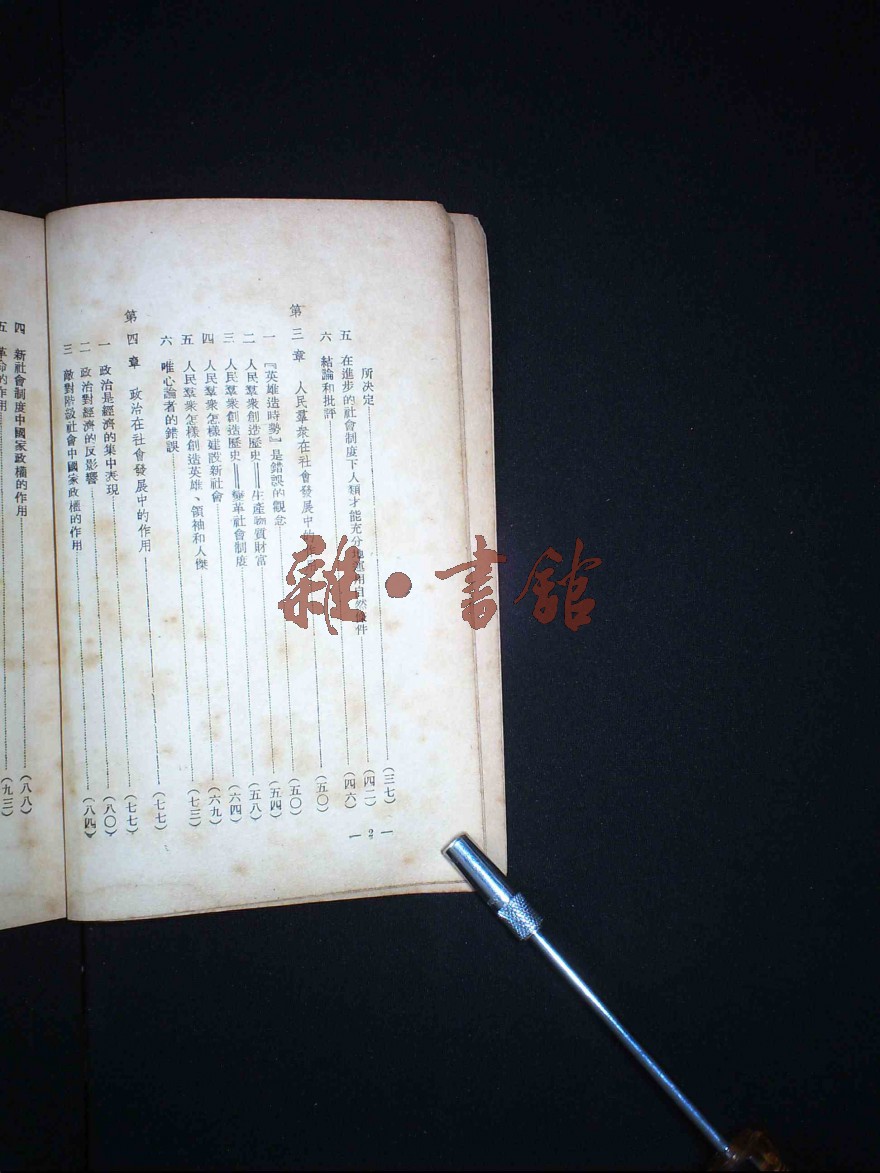 所決定……(三七)
五 在進步的社會制度下人類才能充分地運用自然條件……(四二)
六 結論和批評……(四六)
第三章 人民羣衆在社會發展中的……(五〇)
一 『英雄造時勢』是錯誤的觀念……(五〇)
二 人民羣衆創造歷史——生產物質財富……(五四)
三 人民羣衆創造歷史——變革社會制度……(五八)
四 人民羣衆怎樣建設新社會……(六四)
五 人民羣衆怎樣創造英雄、領袖和人傑……(六九)
六 唯心論者的錯誤……(七三)
第四章 政治在社會發展中的作用……(七七)
一 政治是經濟的集中表現……(七七)
二 政治對經濟的反影響……(八〇)
三 敵對階級社會中國家政權的作用……(八四)
— 2 —
四 新社會制度中國家政權的作用……(八八)
五 革命的作用……(九三)
雜·書館